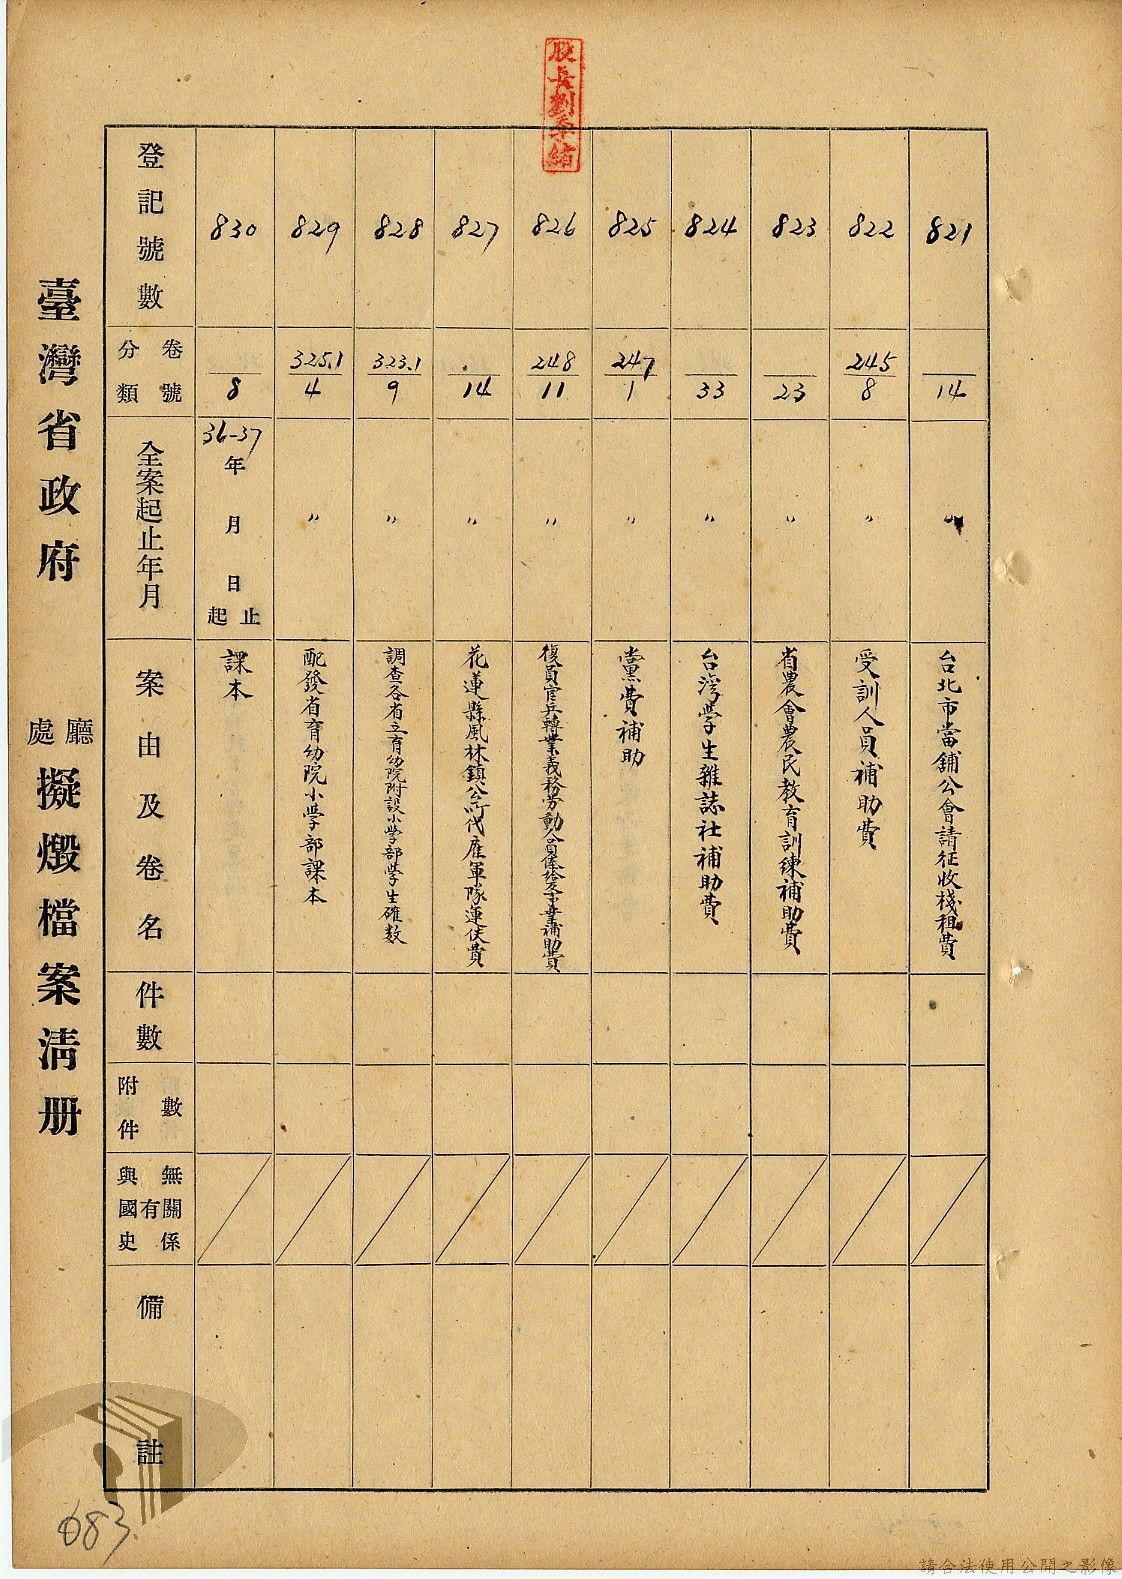 股長劉季緒
臺灣省政府 廳處 擬燬檔案清册
登記號數
830
829
828
827
826
825
824
823
822
821
分類 卷號
8
325.1 4
323.1 9
14
248 11
247 1
33
23
245 8
14
全案起止年月
36-37年月日起止
〃
〃
〃
〃
〃
〃
〃
〃
〃
案由及卷名
課本
配發省育幼院小学部課本
調查各省立育幼院附設小学部学生確数
花蓮縣風林鎮公所代雇軍隊運伕費
復員官兵轉業義務劳動
黨費補助
台灣学生雜誌社補助費
省農會農民教育訓練補助費
受訓人員補助費
台北市當舖公會請征收棧租費
件數
附件 數
與國史有無關係
備註
683
請合法使用公開之影像